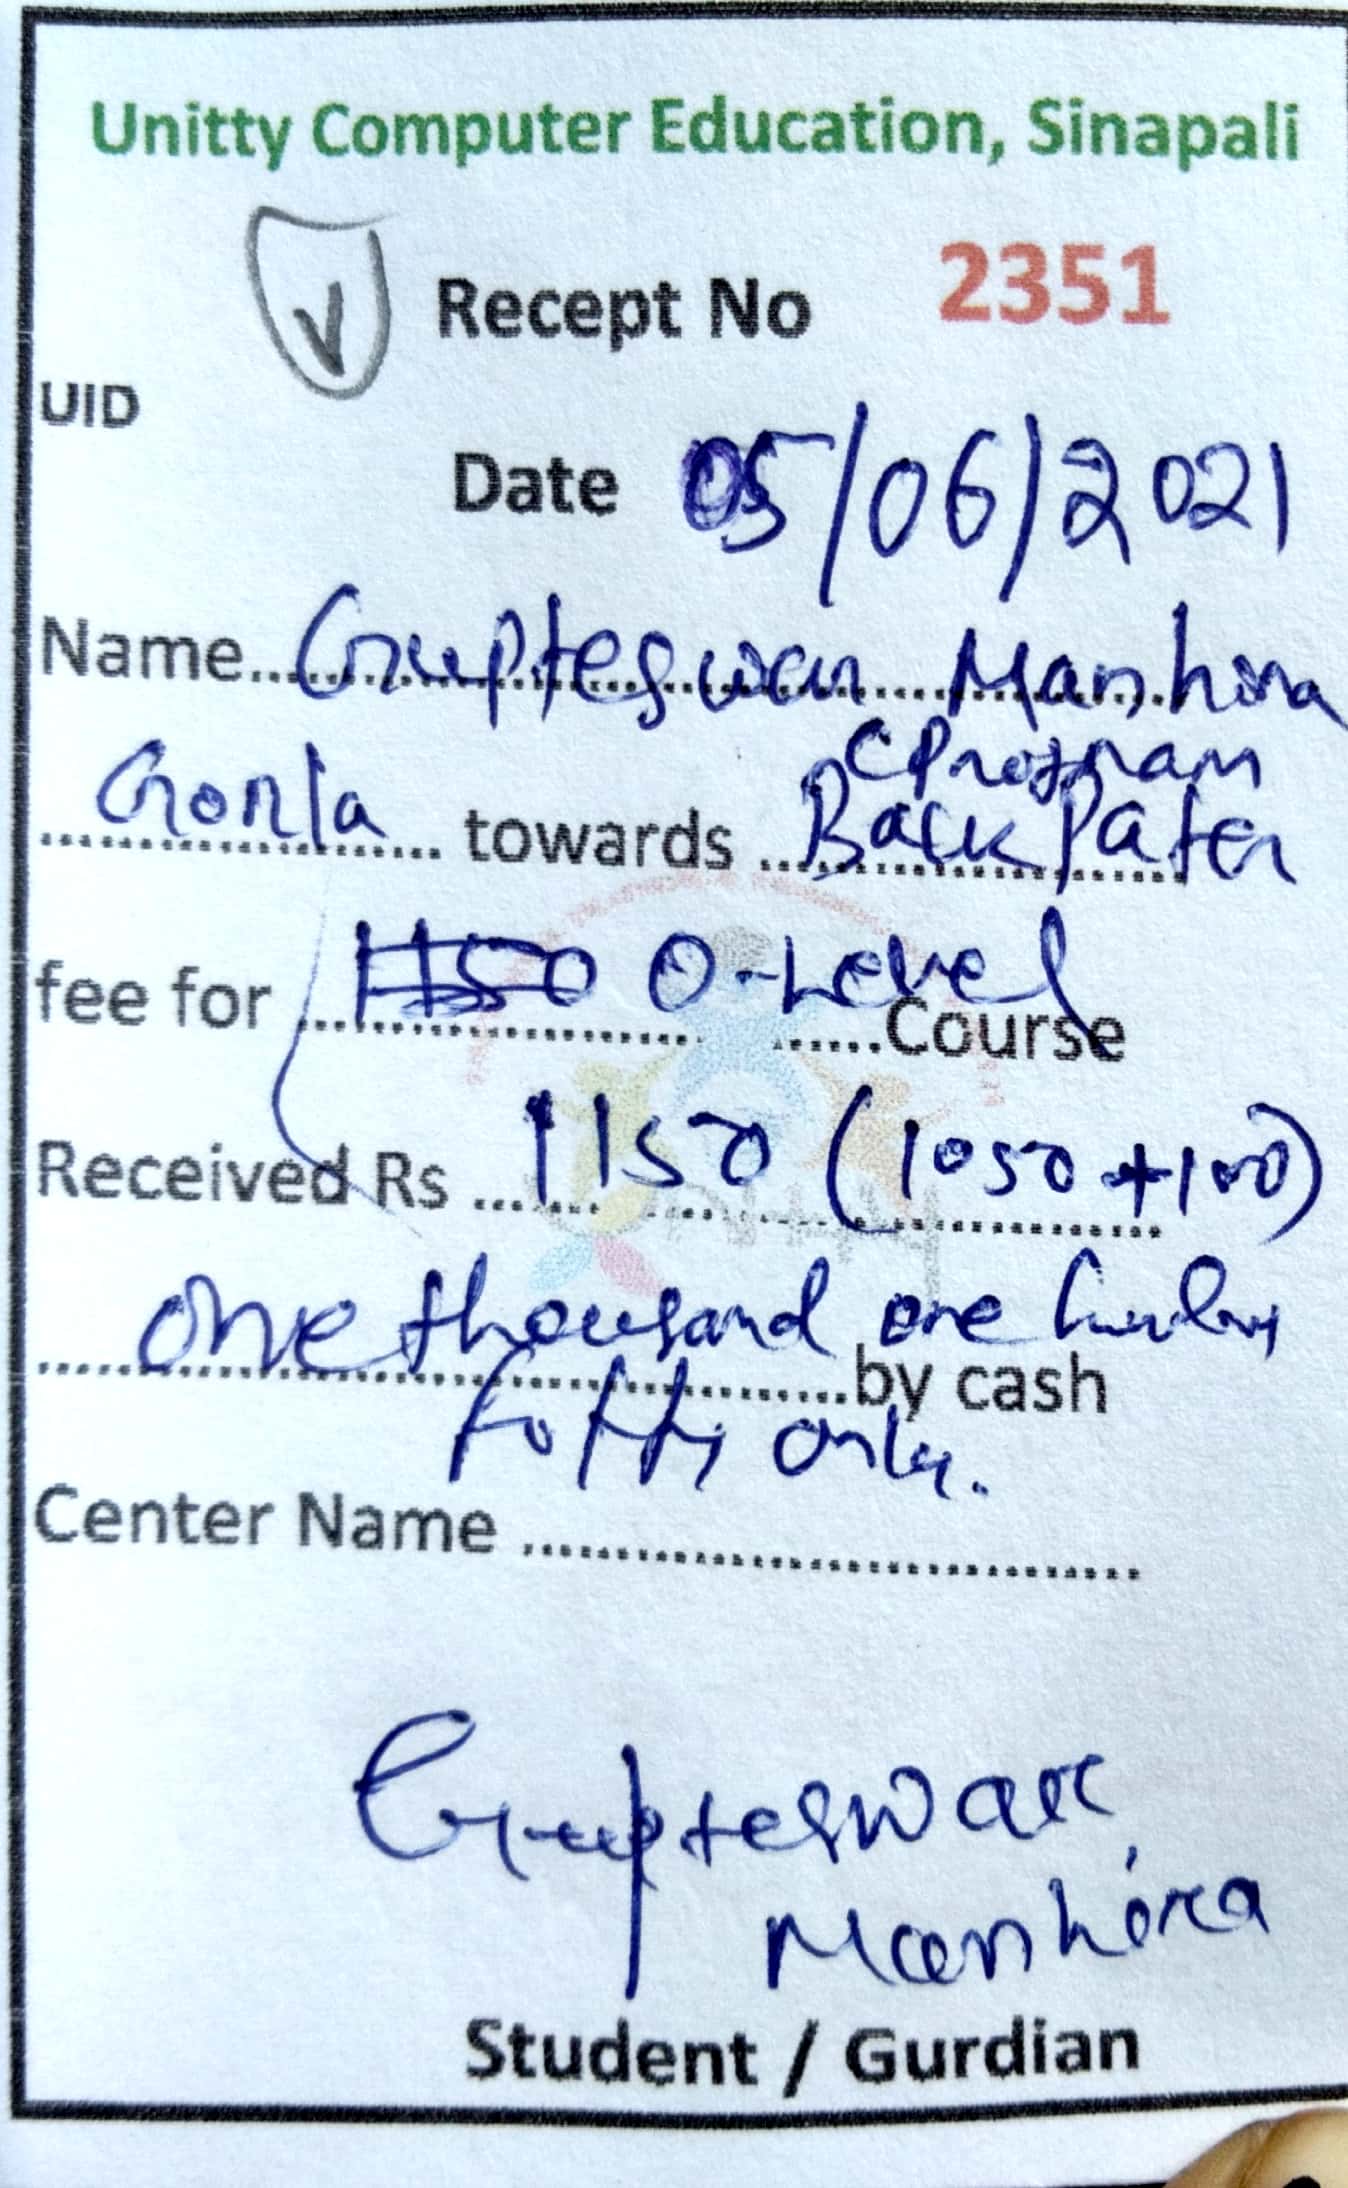 Unitty Computer Education, Sinapali
Recept No 2351
UID
Date 05/06/2021
Name Gupteswar Manhira
C Program
Gorla towards Back Paper
fee for 1150 O-Level Course
Received Rs 1150 (1050+100)
one thousand one
by cash
only.
Center Name
Gupteswar
Manhira
Student / Gurdian